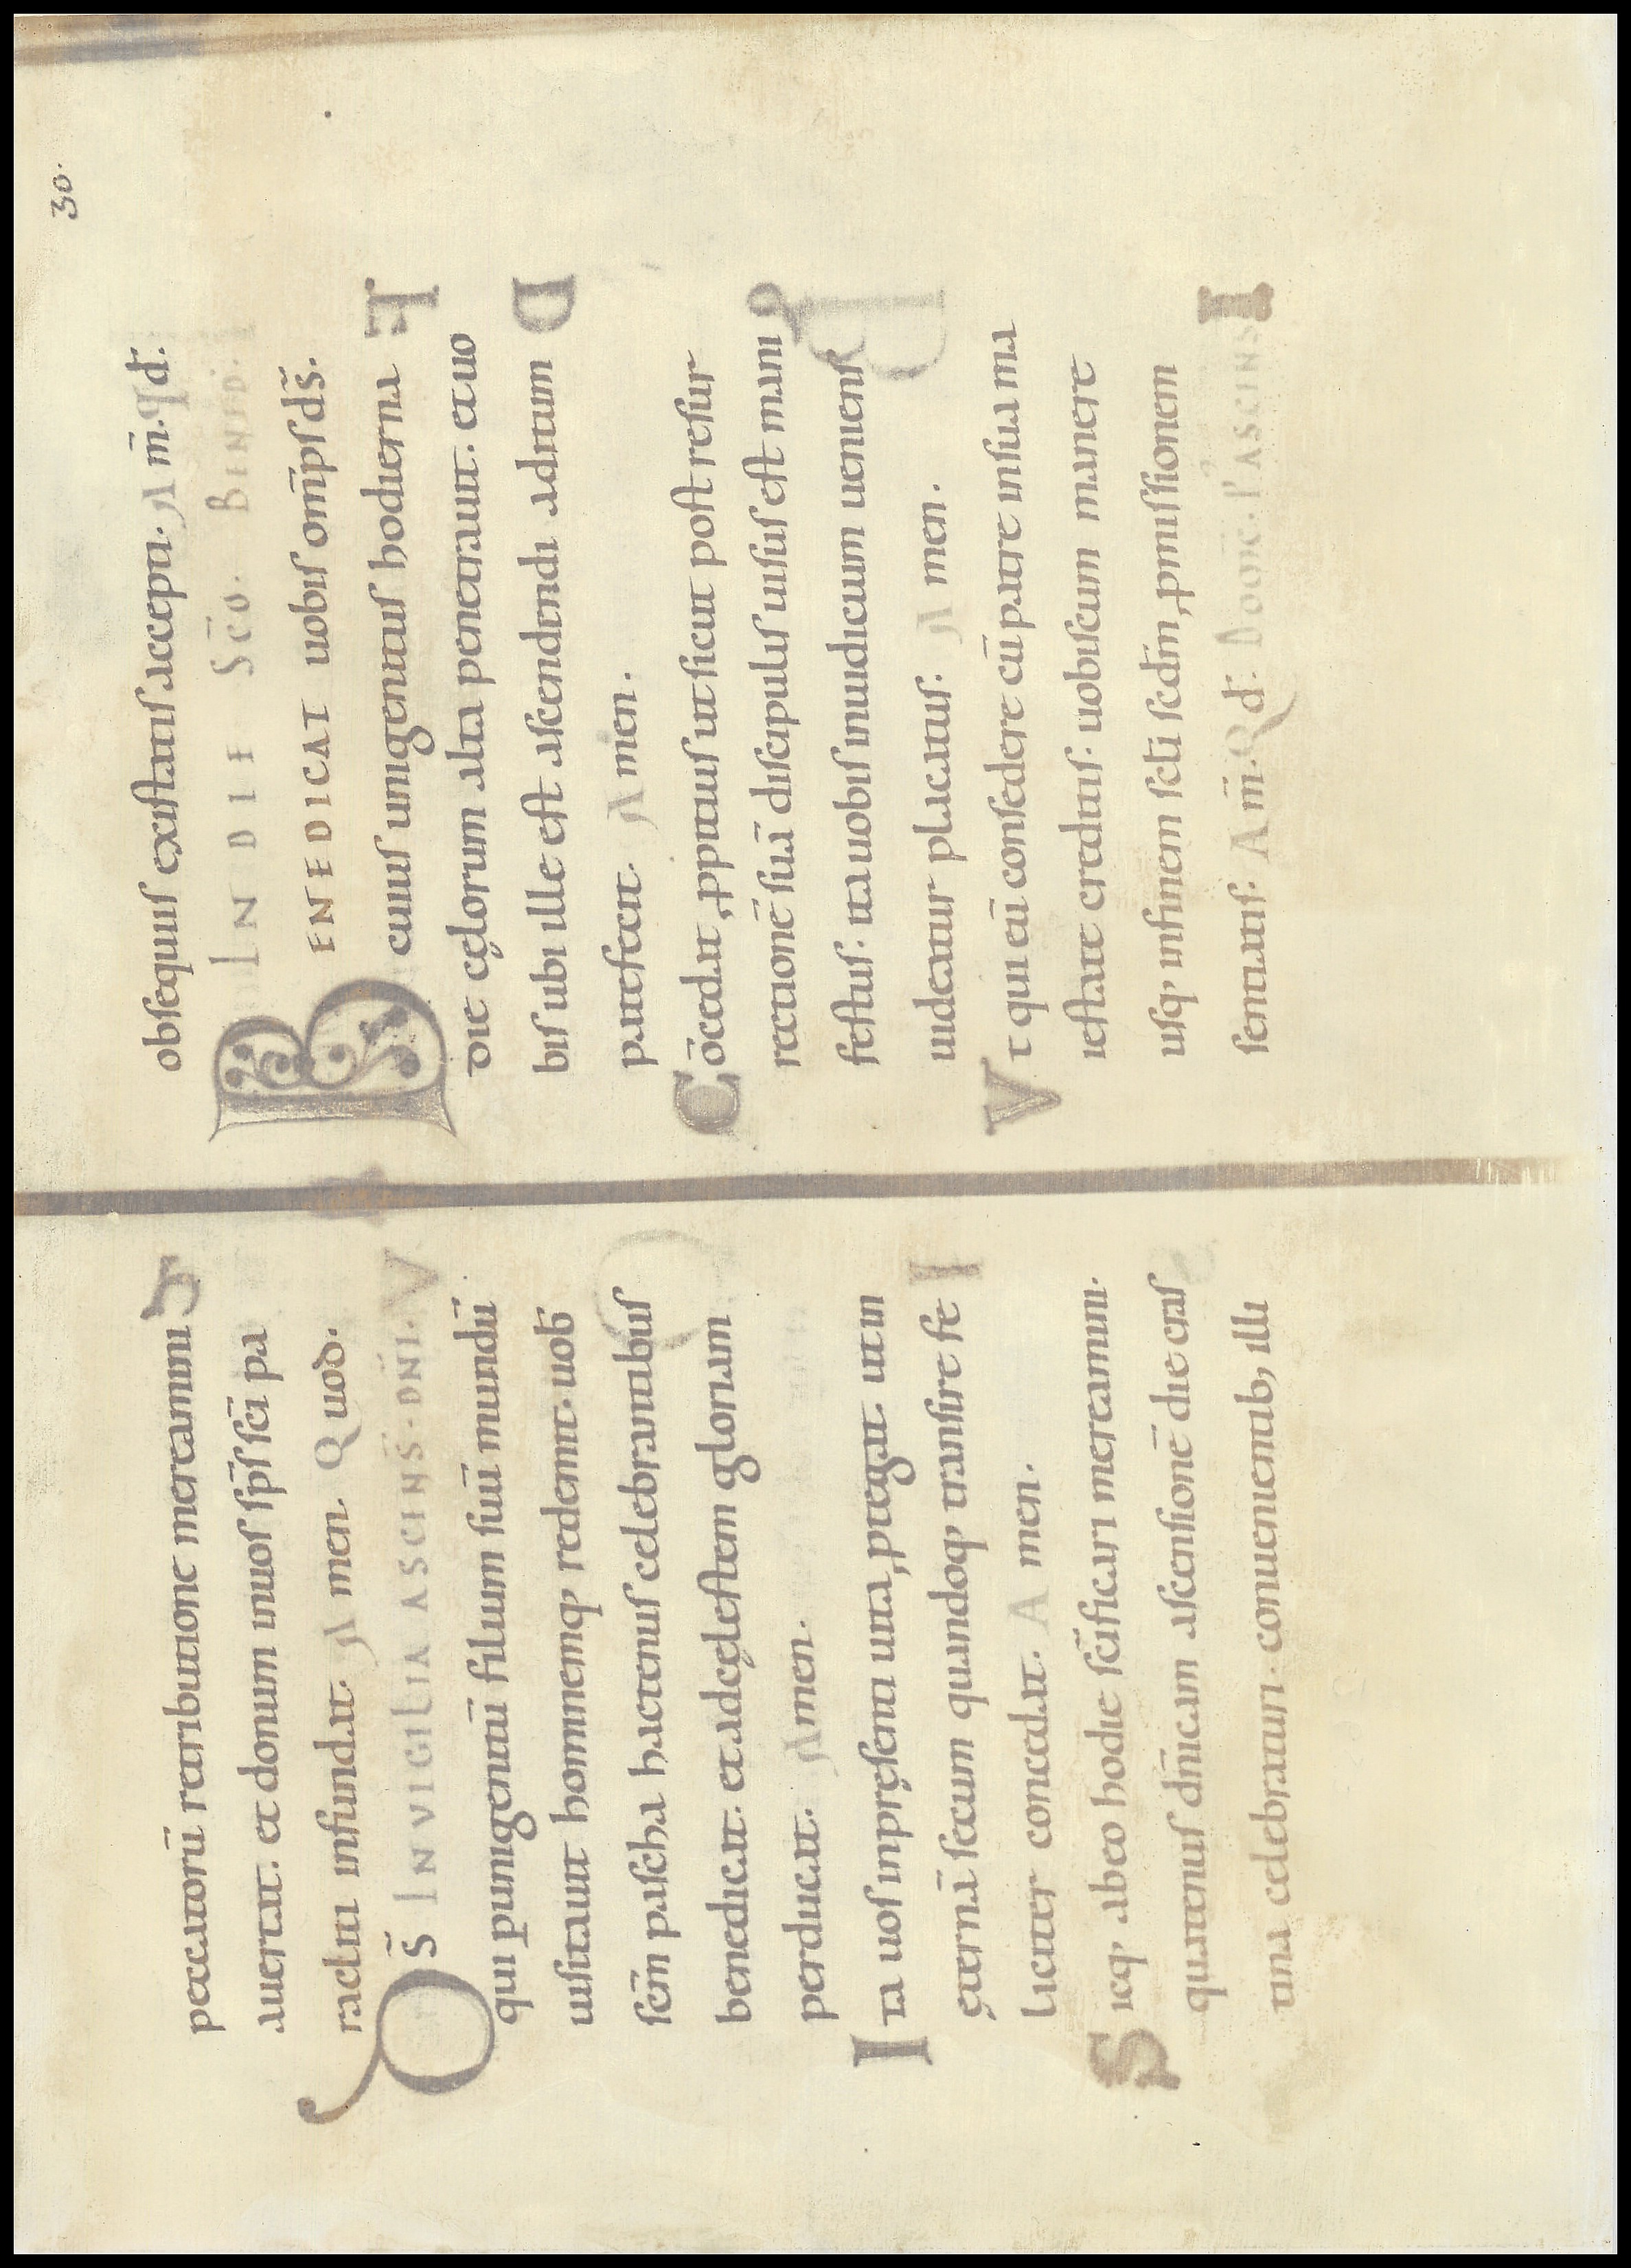 peccatorū retributione mereamini
auertat. et donum inuos sp̄s sc̄i pa
racliti infundat. Amen. Quod.
S̄ IN VIGILIA ASCENS̄. DN̄I.
qui p unigenitū filium suū mundū
uisitauit hominemq; redemit. uob̄
sc̄m pascha hactenus celebrantibus
benedicat. et adcęlestem gloriam
perducat. Amen.
Ita uos inpręsenti uita, ꝓtegat. ut in
ęternā secum quandoq; transire fe
liciter concedat. Amen.
Sicq; abeo hodie sc̄ificari mereamini.
quatenus dn̄icam ascensionē die cras
tina celebraturi. conuenientib; illi
30.
obsequiis existatis accepti. Am̄. Qd̄.
IN DIE SC̄O. BENED.
BENEDICAT uobis omp̄s ds̄.
cuius unigenitus hodierna
die cęlorum alta penetrauit. et uo
bis ubi ille est ascendendi aditum
patefecit. Amen.
Cōcedat ꝓpitius ut sicut post resur
rectionē suā discipulis uisus est mani
festus. ita uobis iniudicium ueniens
uideatur placatus. Amen.
Vt qui eū consedere cū patre insua ma
iestate creditis. uobiscum manere
usq; infinem sc̄li scdm̄ ꝓmissionem
sentiatis. Am̄. Qd̄.